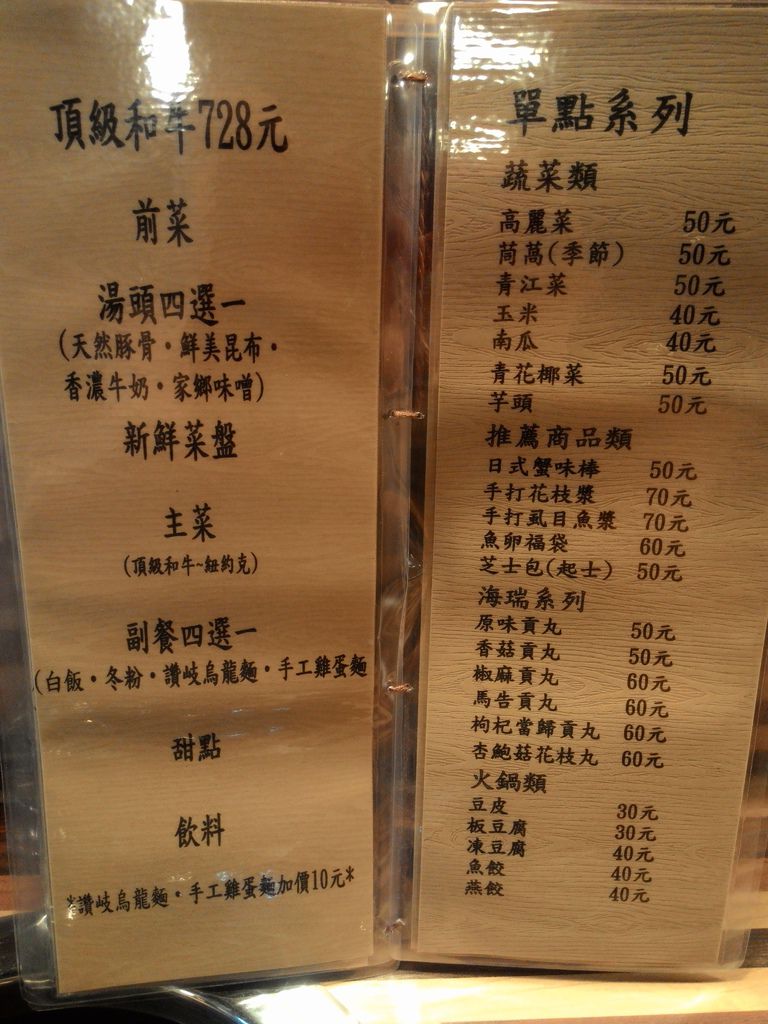 頂級和牛728元
前菜
湯頭四選一
(天然豚骨・鮮美昆布・
香濃牛奶・家鄉味噌)
新鮮菜盤
主菜
(頂級和牛~紐約克)
副餐四選一
(白飯・冬粉・讚岐烏龍麵・手工雞蛋麵
甜點
飲料
*讚岐烏龍麵・手工雞蛋麵加價10元*
單點系列
蔬菜類
高麗菜 50元
茼萵(季節) 50元
青江菜 50元
玉米 40元
南瓜 40元
青花椰菜 50元
芋頭 50元
推薦商品類
日式蟹味棒 50元
手打花枝漿 70元
手打虱目魚漿 70元
魚卵福袋 60元
芝士包(起士) 50元
海瑞系列
原味貢丸 50元
香菇貢丸 50元
椒麻貢丸 60元
馬告貢丸 60元
枸杞當歸貢丸 60元
杏鮑菇花枝丸 60元
火鍋類
豆皮 30元
板豆腐 30元
凍豆腐 40元
魚餃 40元
燕餃 40元